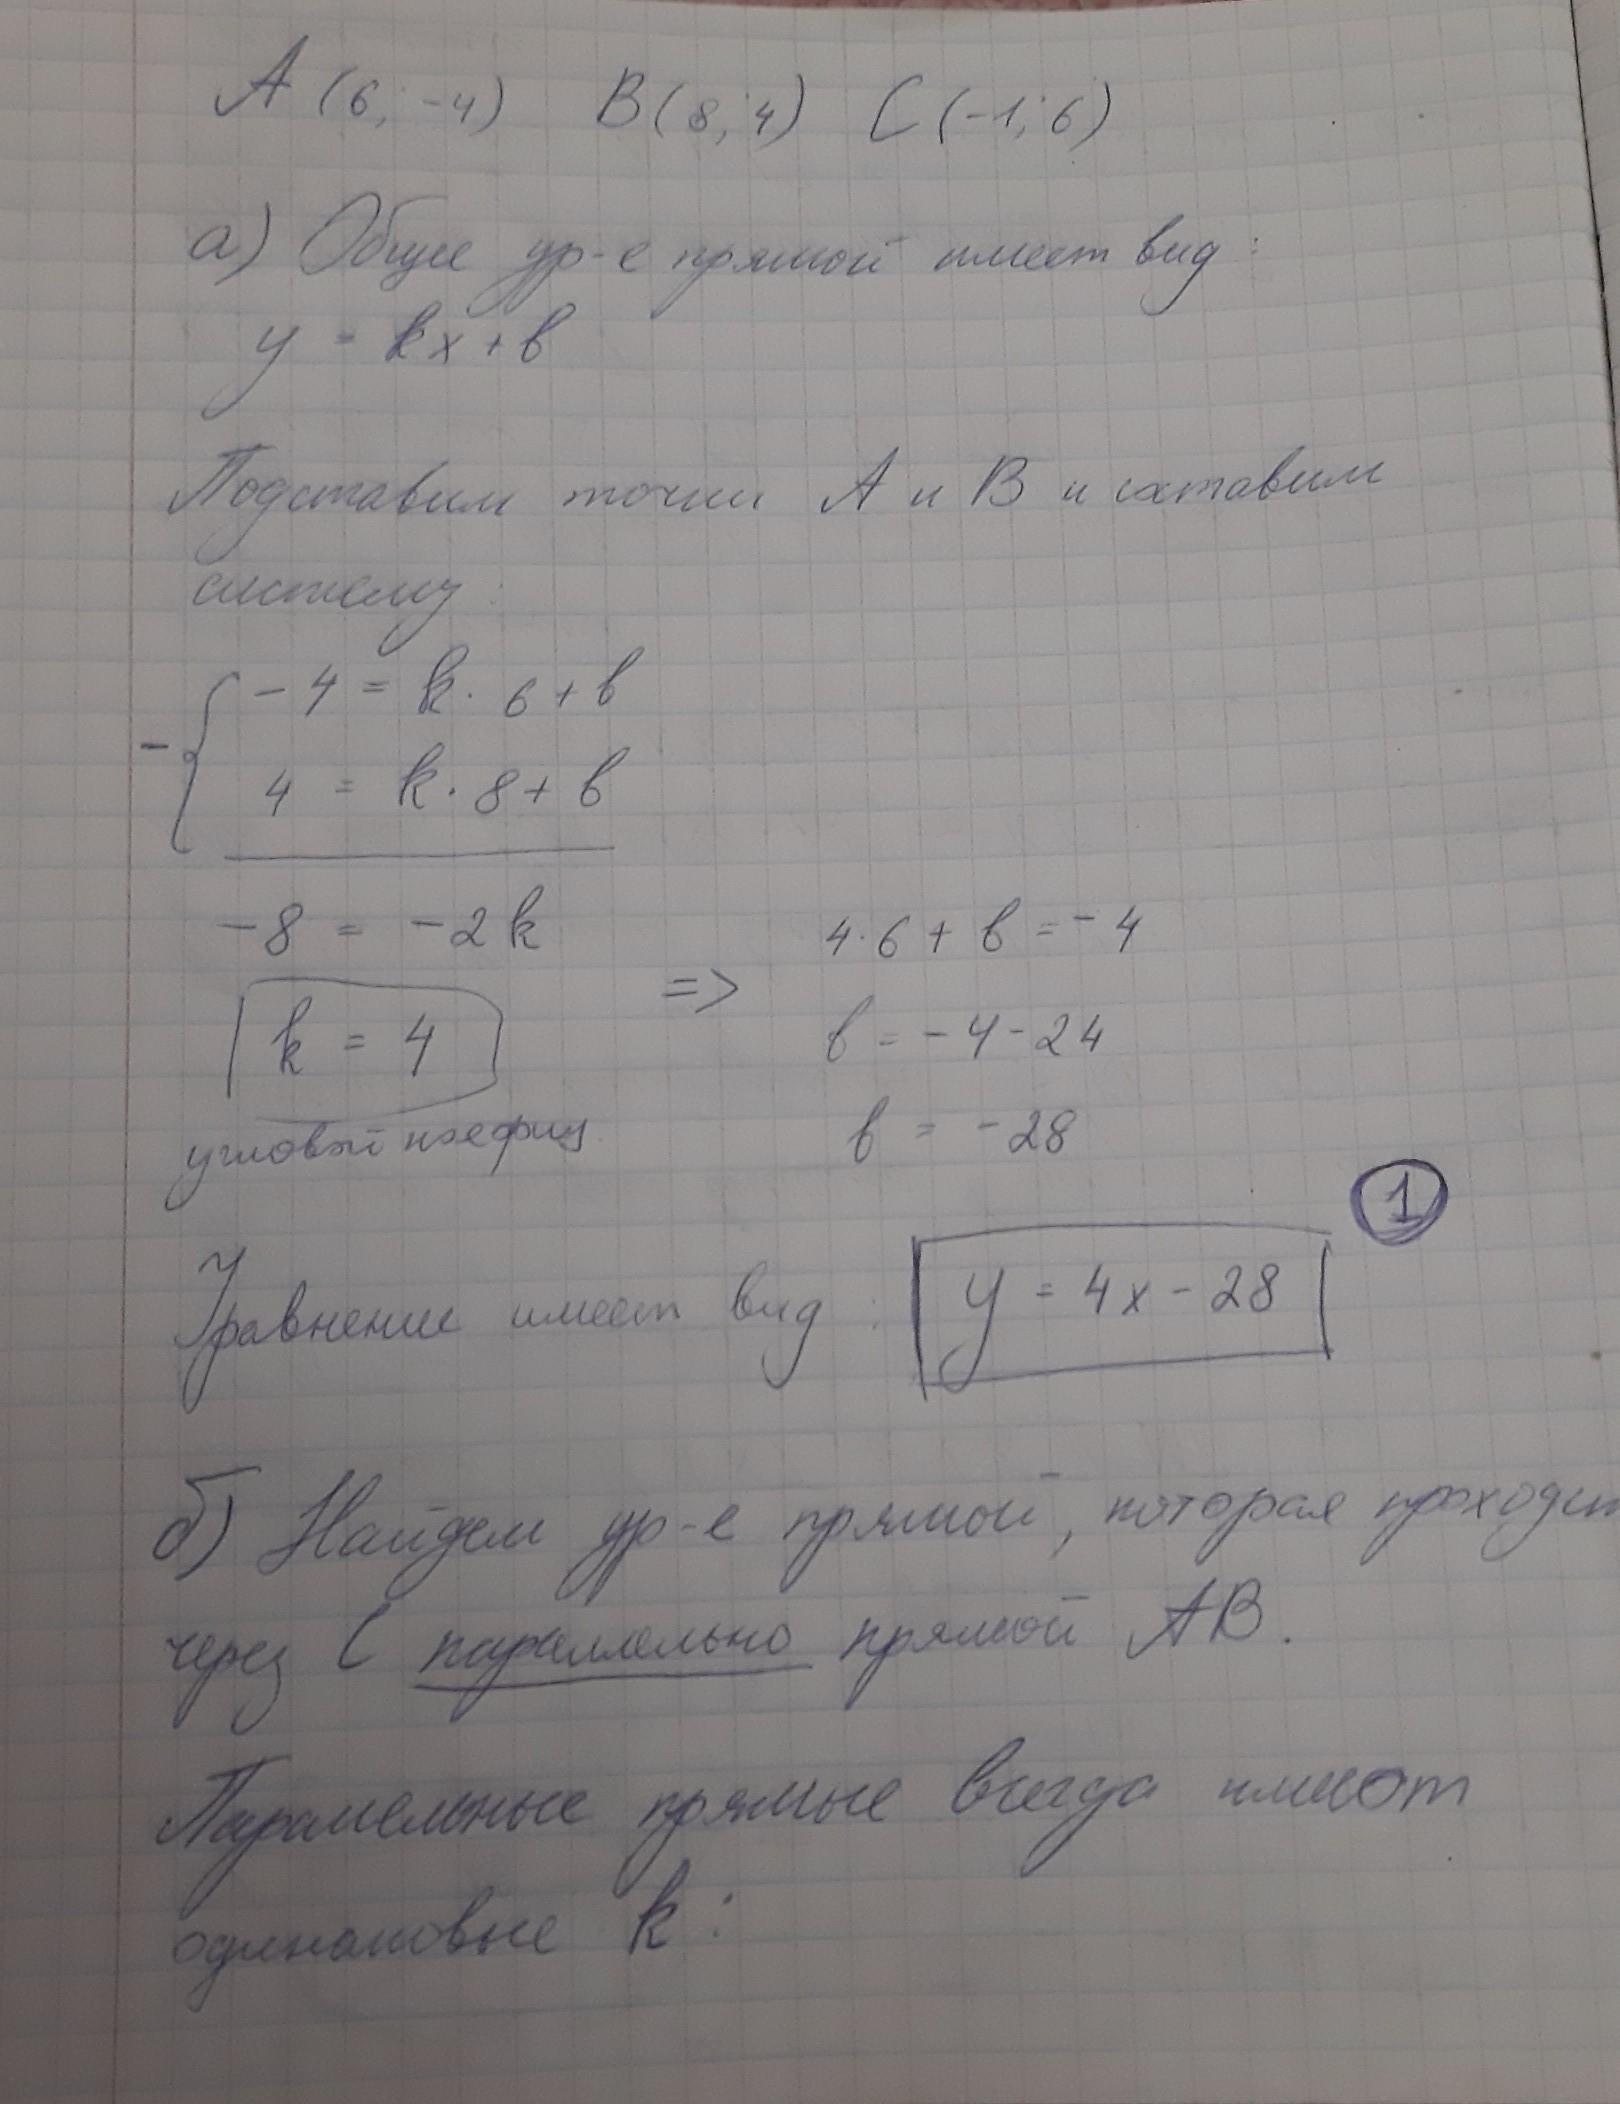 A (6; -4) B (8; 4) C (-1; 6)
а) Общее ур-е прямой имеет вид:
y = kx + b
Подставим точки A и B и составим
систему:
- { -4 = k · 6 + b
4 = k · 8 + b
-8 = -2k
k = 4
угловой коэфиц.
=>
4·6 + b = -4
b = -4 - 24
b = -28
1
Уравнение имеет вид: y = 4x - 28
б) Найдем ур-е прямой, которая проходит
через C параллельно прямой AB.
Параллельные прямые всегда имеют
одинаковые k: